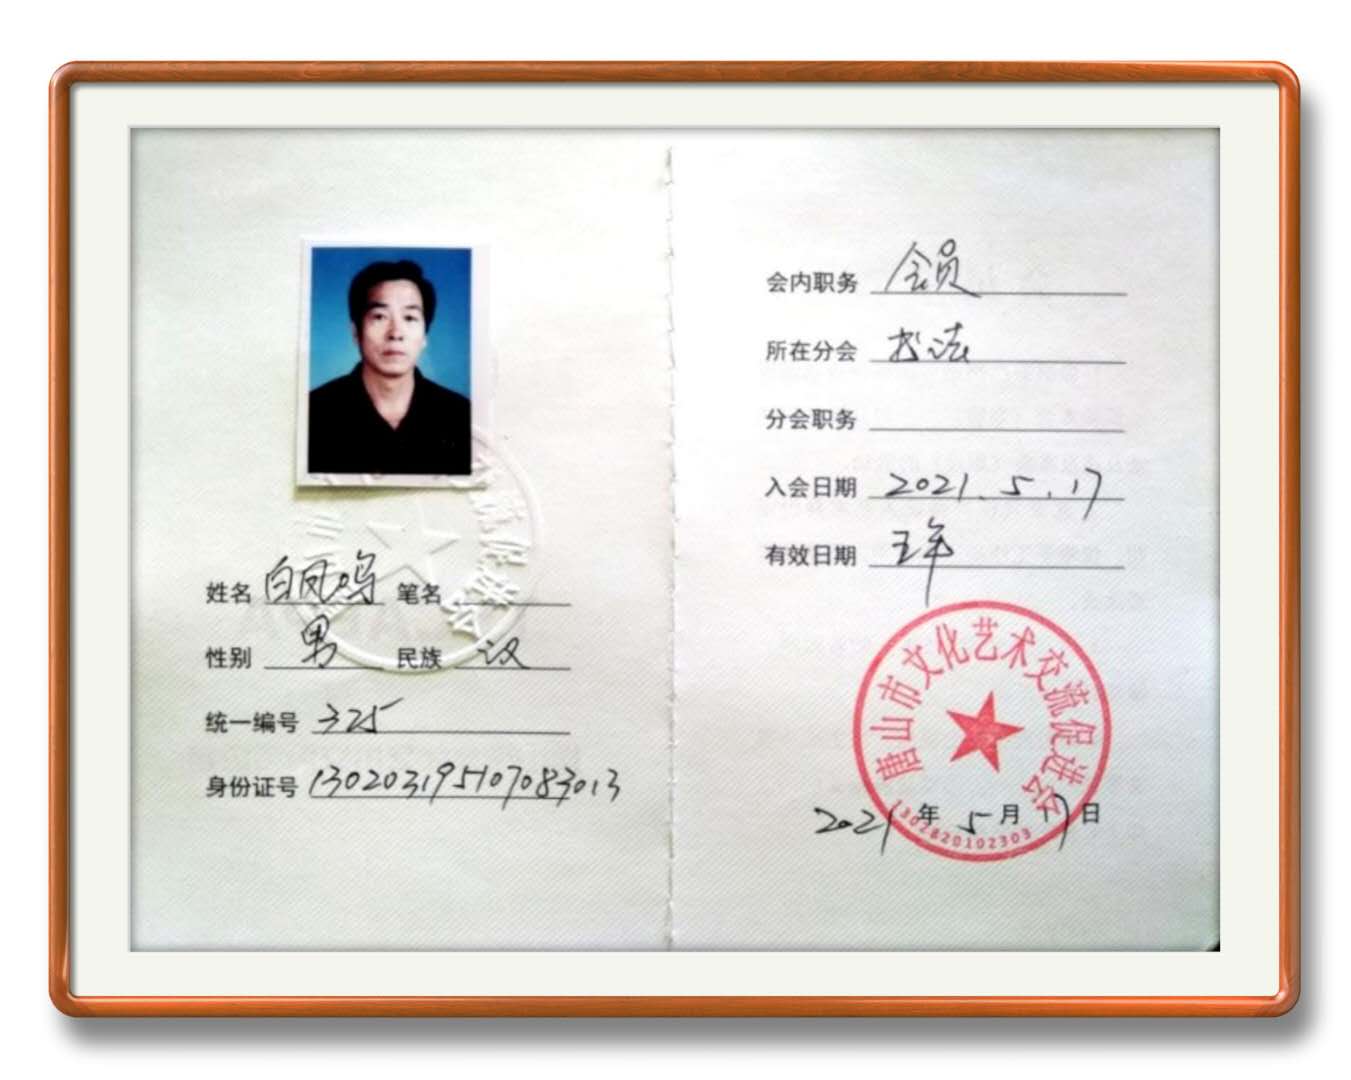 姓名 白凤鸣 笔名
性别 男 民族 汉
统一编号 325
身份证号 130203195107083013
会内职务 会员
所在分会 书法
分会职务
入会日期 2021.5.17
有效日期 五年
唐山市文化艺术交流促进会
2021年5月17日
1302820102303